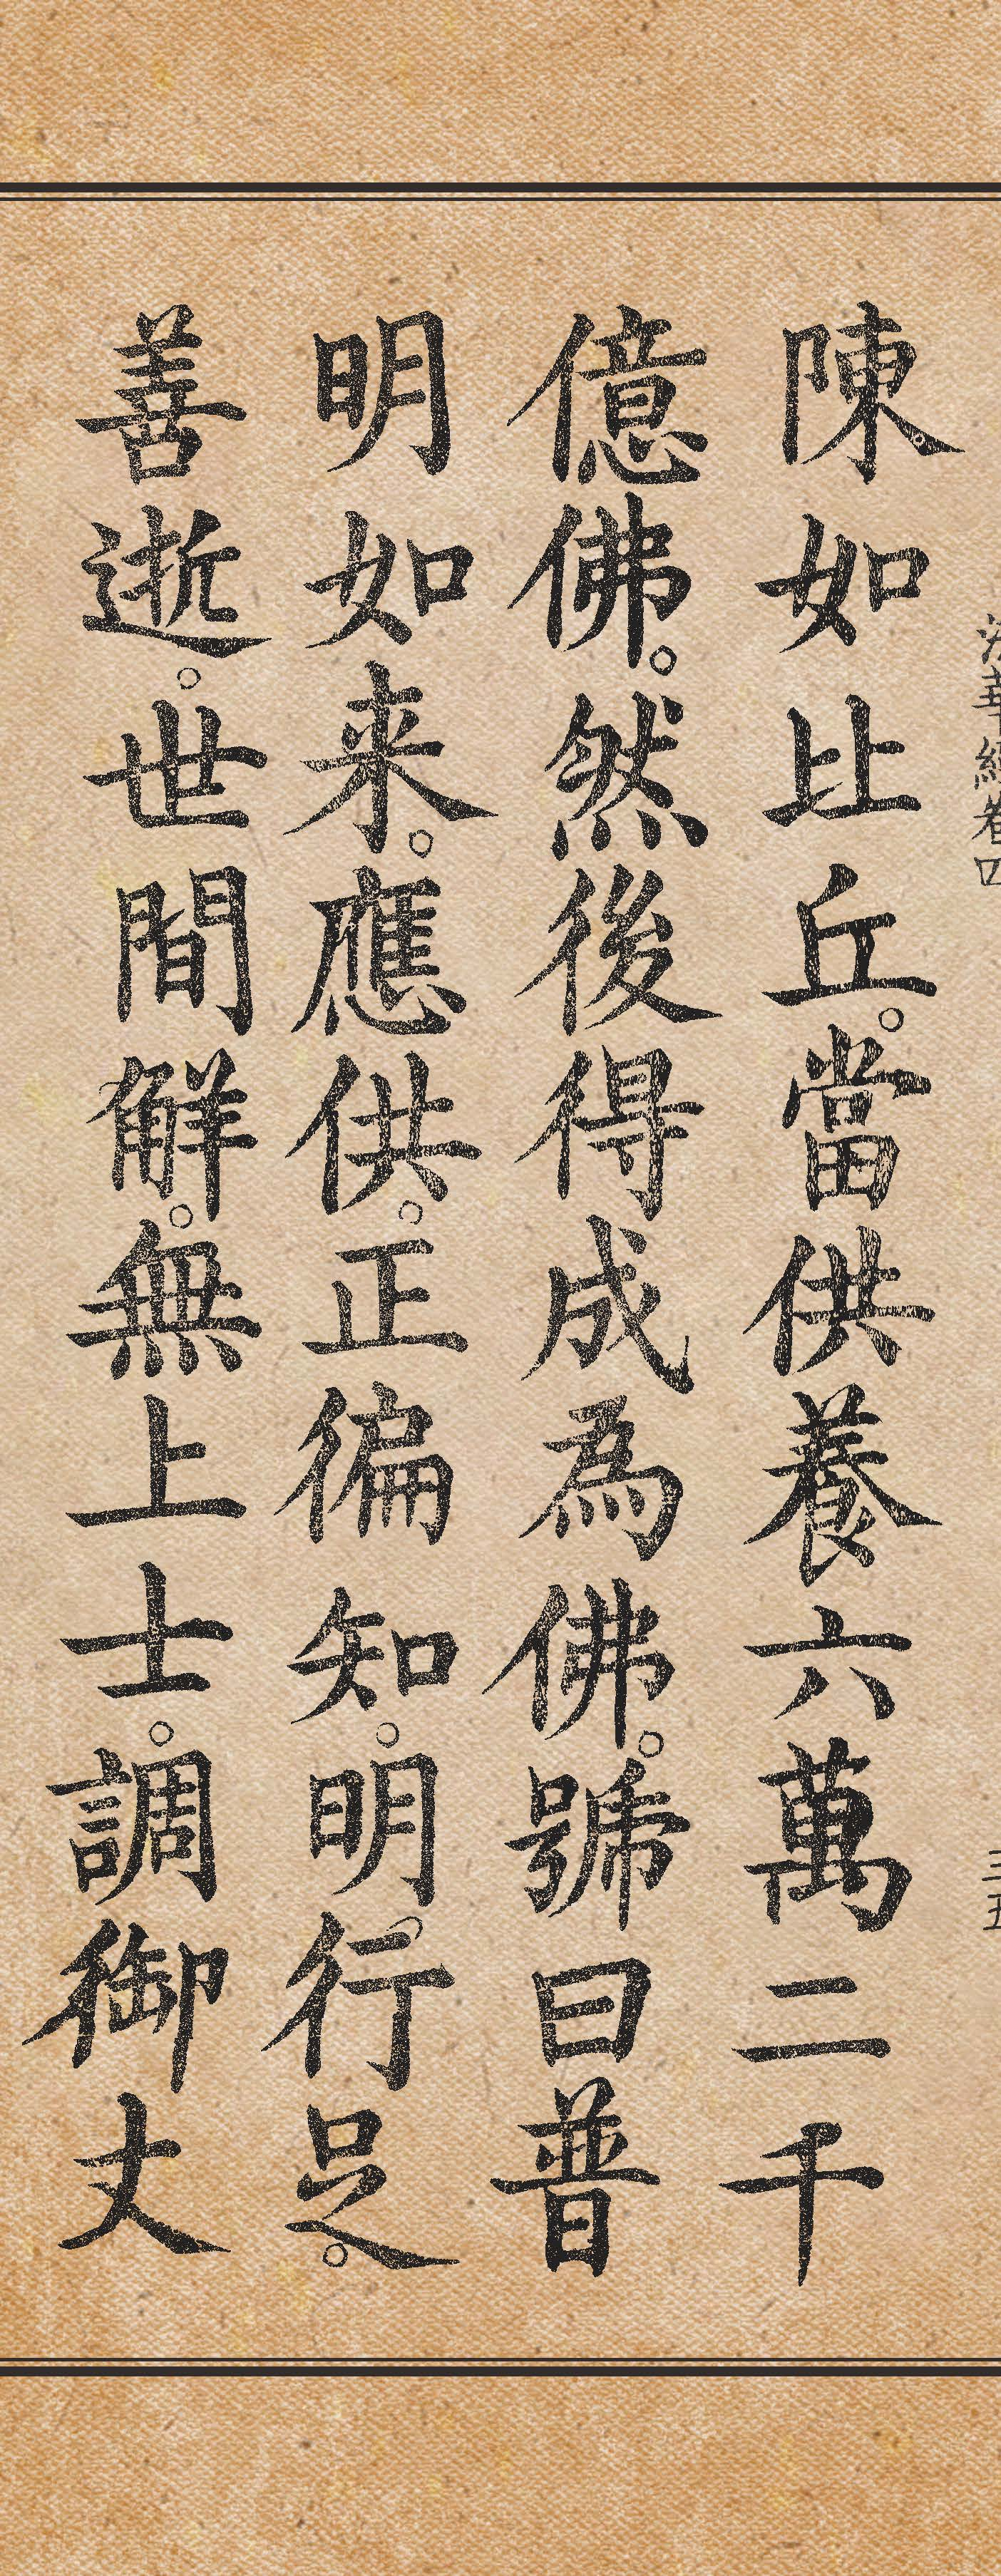 法華經卷四
三五
陳如比丘。當供養六萬二千
億佛。然後得成為佛。號曰普
明如来。應供。正徧知。明行足。
善逝。世間解。無上士。調御丈